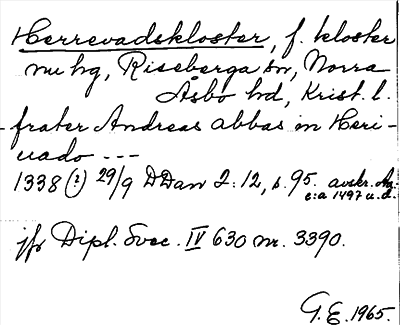 Herrevadskloster, f. kloster
nu hg, Riseberga sn, Norra
Åsbo hd, Krist. l.
frater Andreas abbas in Heri-
uado ---
1338 (?) 29/9 DDan 2:12, s. 95. avskr. Aa,
c:a 1497 u.d.
jfr Dipl. Svec. IV 630 nr. 3390.
G. E. 1965.